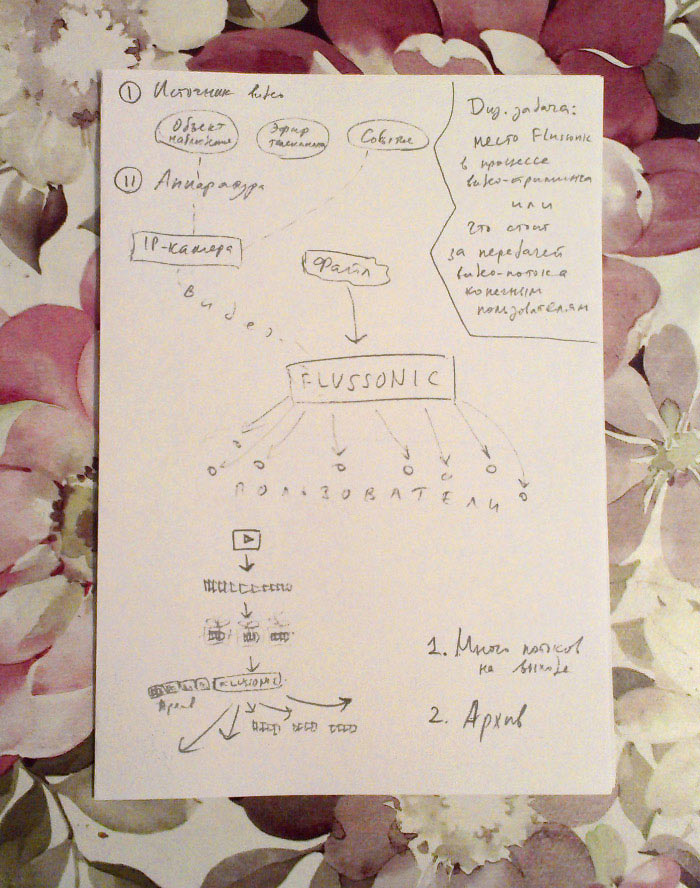 I Источник видео
Объект
наблюдения
Эфир
телеканала
Событие
II Аппаратура
IP-камера
Файл
видео
FLUSSONIC
ПОЛЬЗОВАТЕЛИ
Диз. задача:
место Flussonic
в процессе
видео-стриминга
или
что стоит
за передачей
видео-потока
конечным
пользователям
FLUSSONIC
Архив
1. Много потоков
на выходе
2. Архив